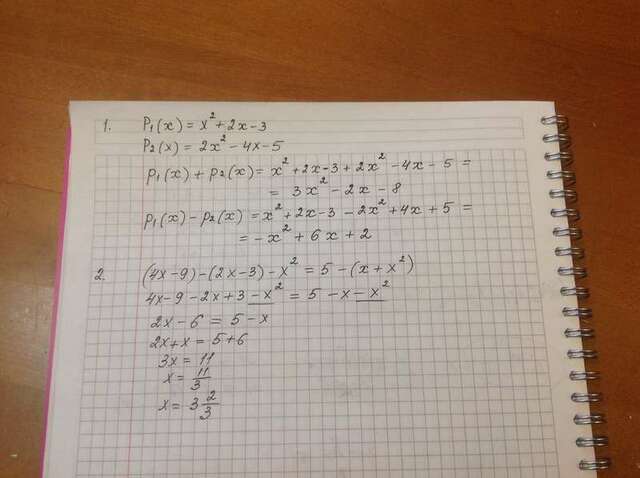 1. P₁(x) = x² + 2x - 3
P₂(x) = 2x² - 4x - 5
P₁(x) + P₂(x) = x² + 2x - 3 + 2x² - 4x - 5 =
= 3x² - 2x - 8
P₁(x) - P₂(x) = x² + 2x - 3 - 2x² + 4x + 5 =
= -x² + 6x + 2
2. (4x - 9) - (2x - 3) - x² = 5 - (x + x²)
4x - 9 - 2x + 3 - x² = 5 - x - x²
2x - 6 = 5 - x
2x + x = 5 + 6
3x = 11
x = 11/3
x = 3 2/3